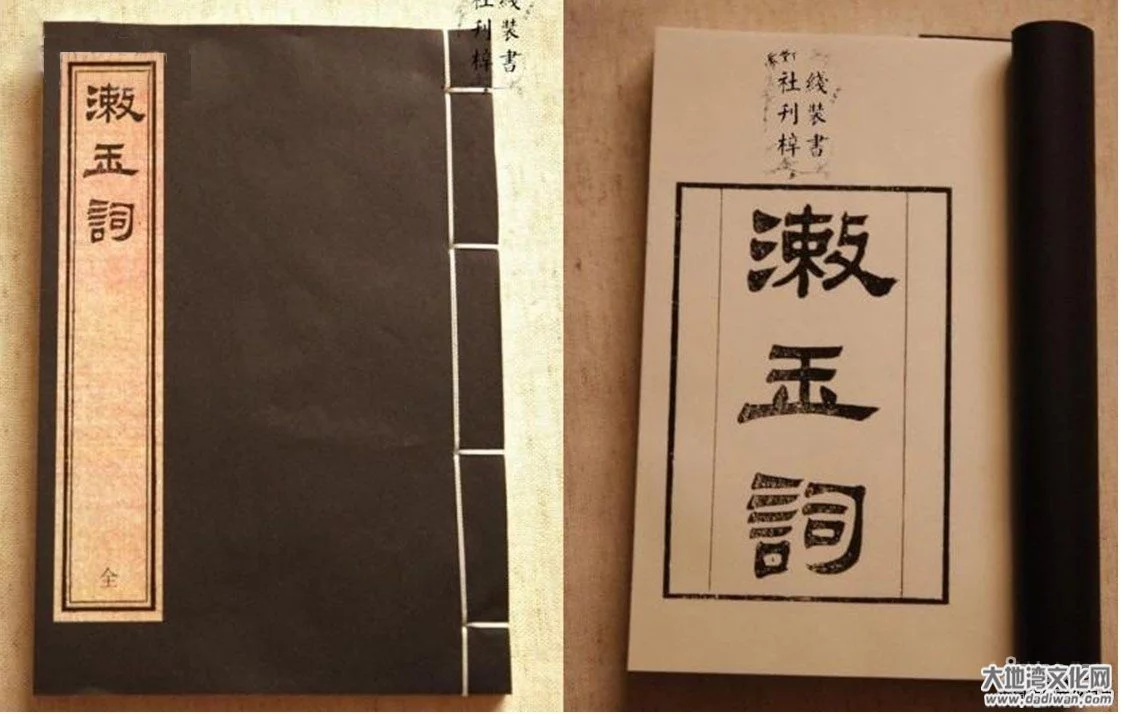 潄玉詞
全
装書
刊梓
綫装書
社刊梓
潄玉詞
大地湾文化网
www.dadiwan.com